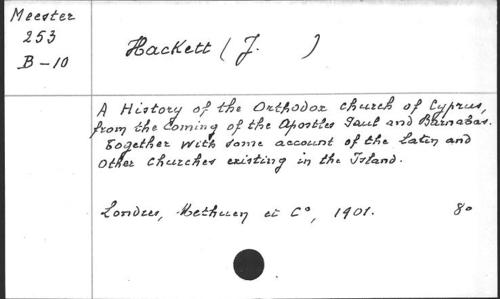 Meester
253
B-10
Hackett (J. )
A History of the Orthodox church of Cyprus,
from the Coming of the Apostles Paul and Barnabas.
Together with some account of the Latin and
Other Churches existing in the Island.
Londres, Methuen et C°, 1901. 8°